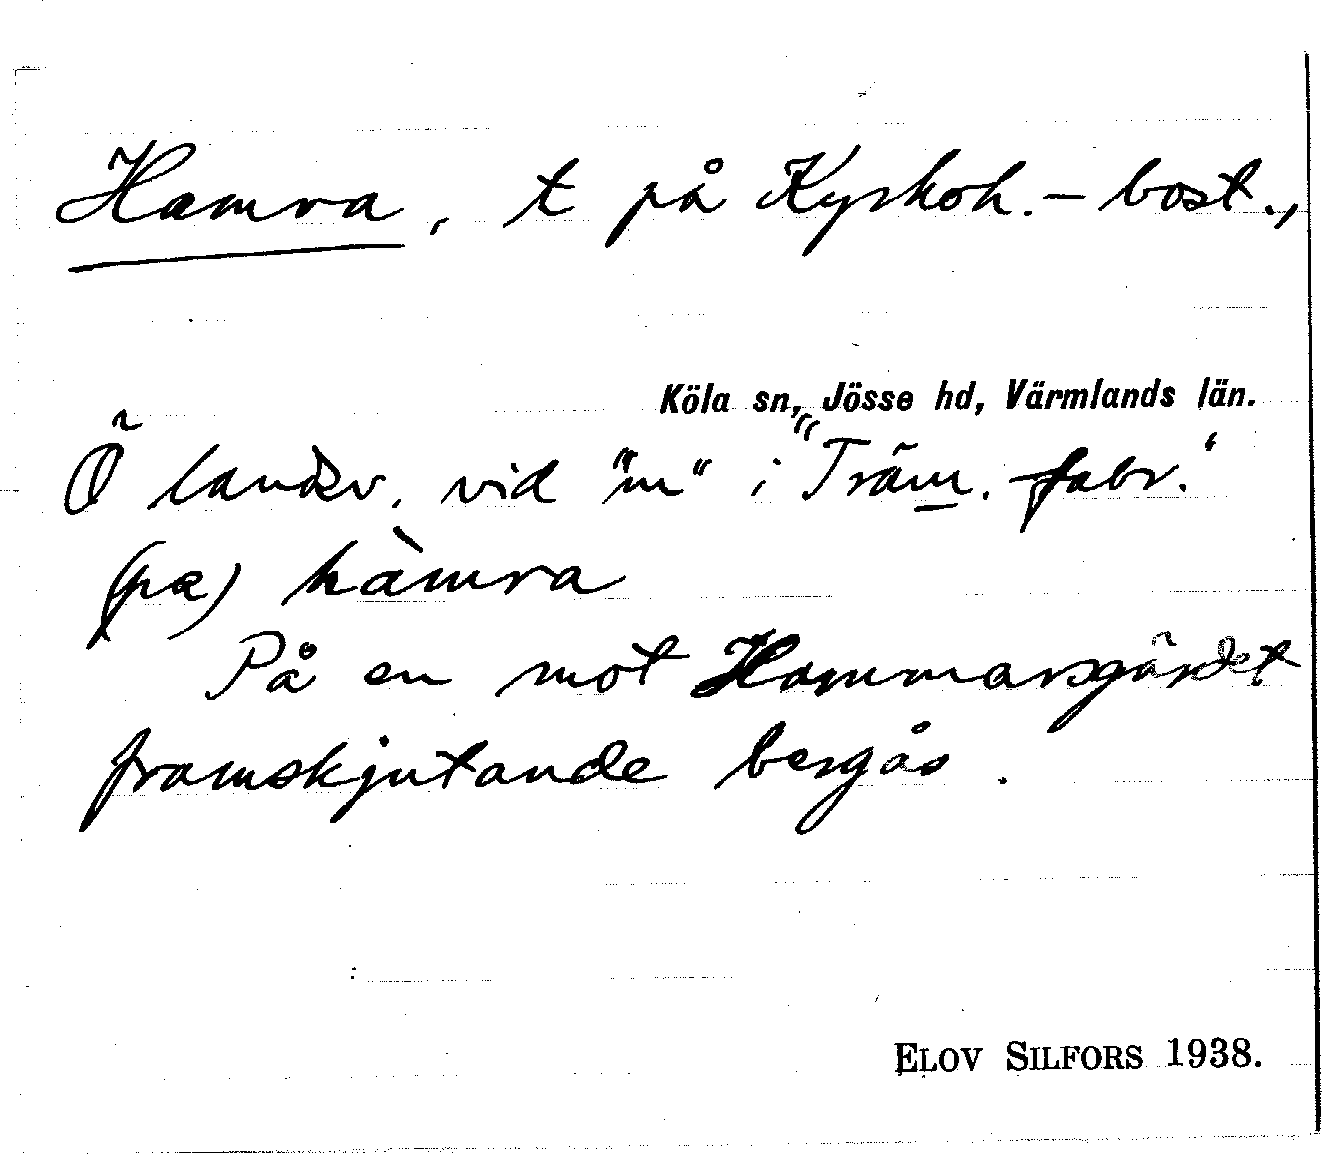 Hamra, t på Kyrkoh.-bost.,
Köla sn, Jösse hd, Värmlands län.
Ö landsv. vid "m" i "Träm. fabr."
(pa) hàmra
På en mot Hammarsgärdet
framskjutande bergås.
ELOV SILFORS 1938.